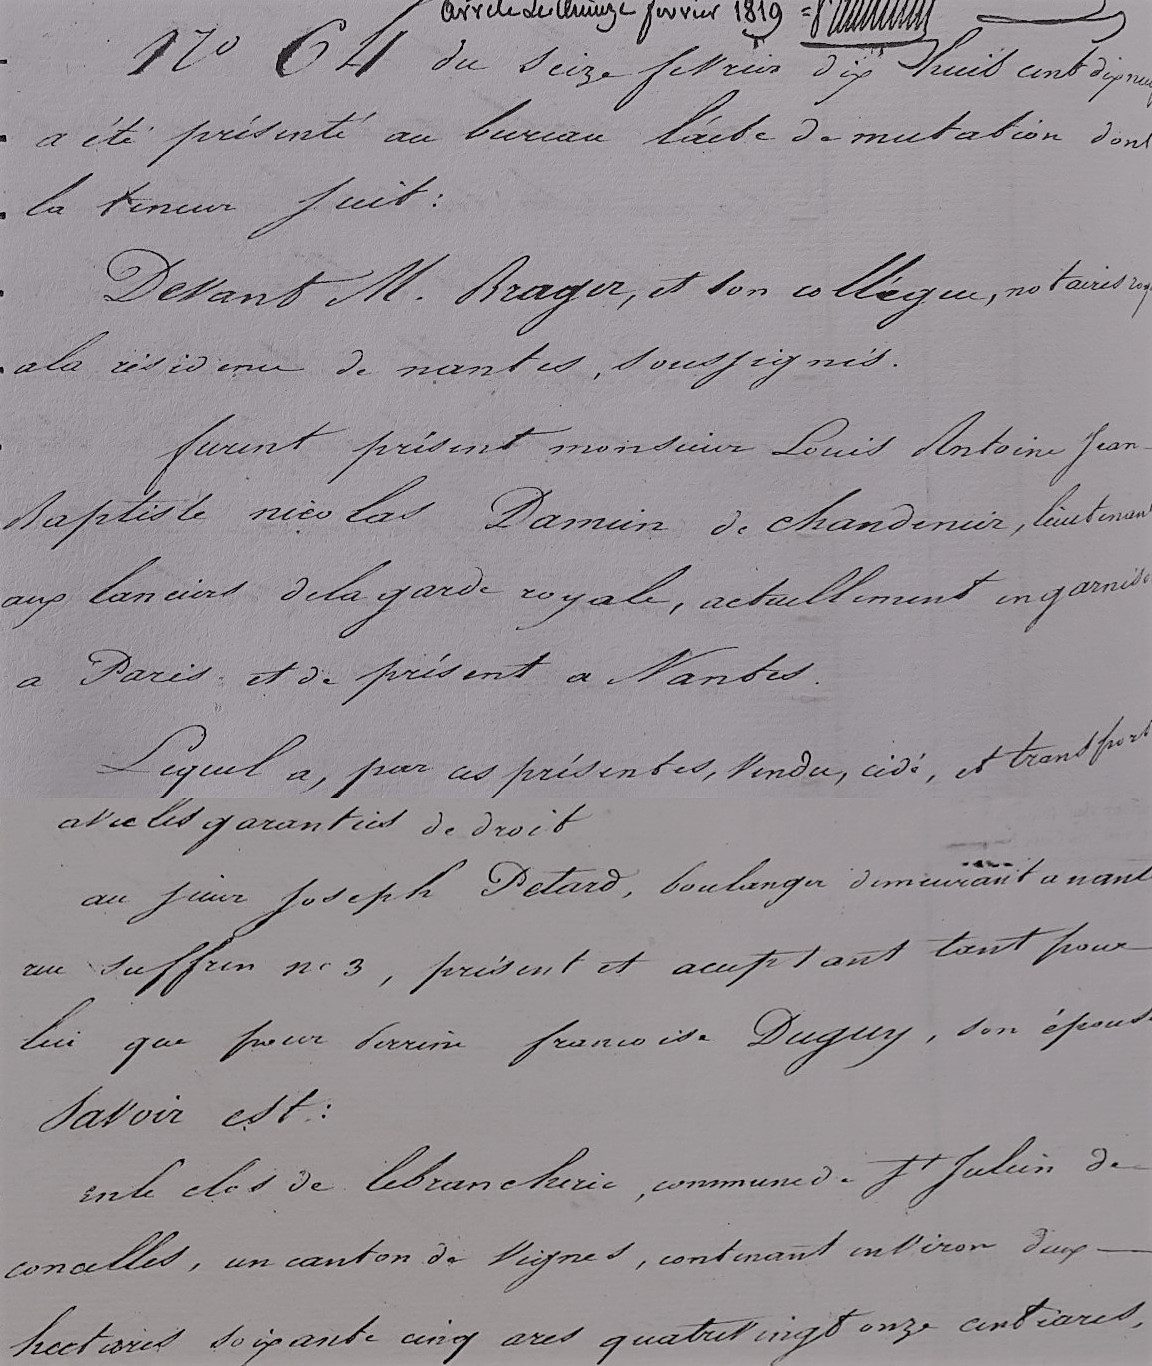 arrêté le quinze fevrier 1819 =
N° 64 du seize fevrier dix huit cent dix neuf
a été présenté au bureau l'acte de mutation dont
la teneur suit :
Devant M. Brager, et son collégue, notaires roy
a la résidence de nantes, soussignés.
furent présent monsieur Louis Antoine Jean-
Baptiste nicolas Damien de chandenier, lieutenant
aux lanciers de la garde royale, actuellement en garniso
a Paris et de présent a Nantes.
Lequel a, par ces présentes, vendu, cédé, et transport
avec les garanties de droit
au sieur Joseph Petard, boulanger demeurant a nant
rue suffren n° 3, présent et aceptant tant pour
lui que pour perrine francoise Duguy, son épouse
Savoir est :
en le clos de lebrancherie, commune de St Julien de
concelles, un canton de vignes, contenant environ deux —
hectares soixante cinq ares quatre vingt onze centiares,